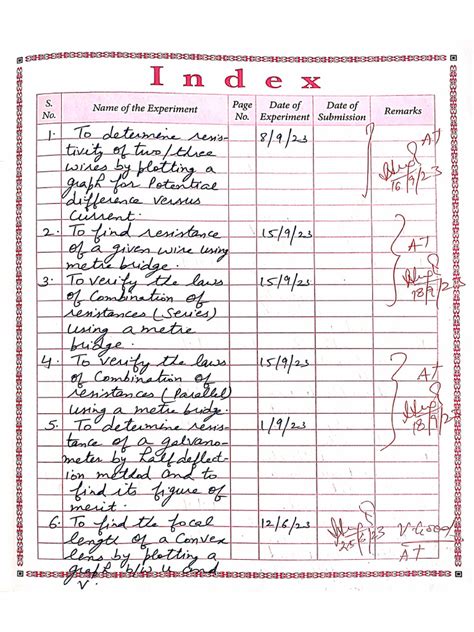 Index
S. No. Name of the Experiment Page No. Date of Experiment Date of Submission Remarks
1. To determine resis- 8/9/23
tivity of two/three
wires by plotting a
graph for Potential
difference versus
Current.
AT
16/9/23
2. To find resistance 15/9/23
of a given wire using
metre bridge.
AT
18/9/23
3. To verify the laws 15/9/23
of Combination of
resistances (Series)
using a metre
bridge.
4. To verify the laws 15/9/23
of Combination of
resistances (Parallel)
using a metre bridge.
AT
18/9/23
5. To determine resis- 1/9/23
tance of a galvano-
meter by half deflect-
ion method and to
find its figure of
merit.
6. To find the focal 12/6/23
length of a Convex
lens by plotting a
graph b/w u and
v.
25/6/23
V. Good
AT